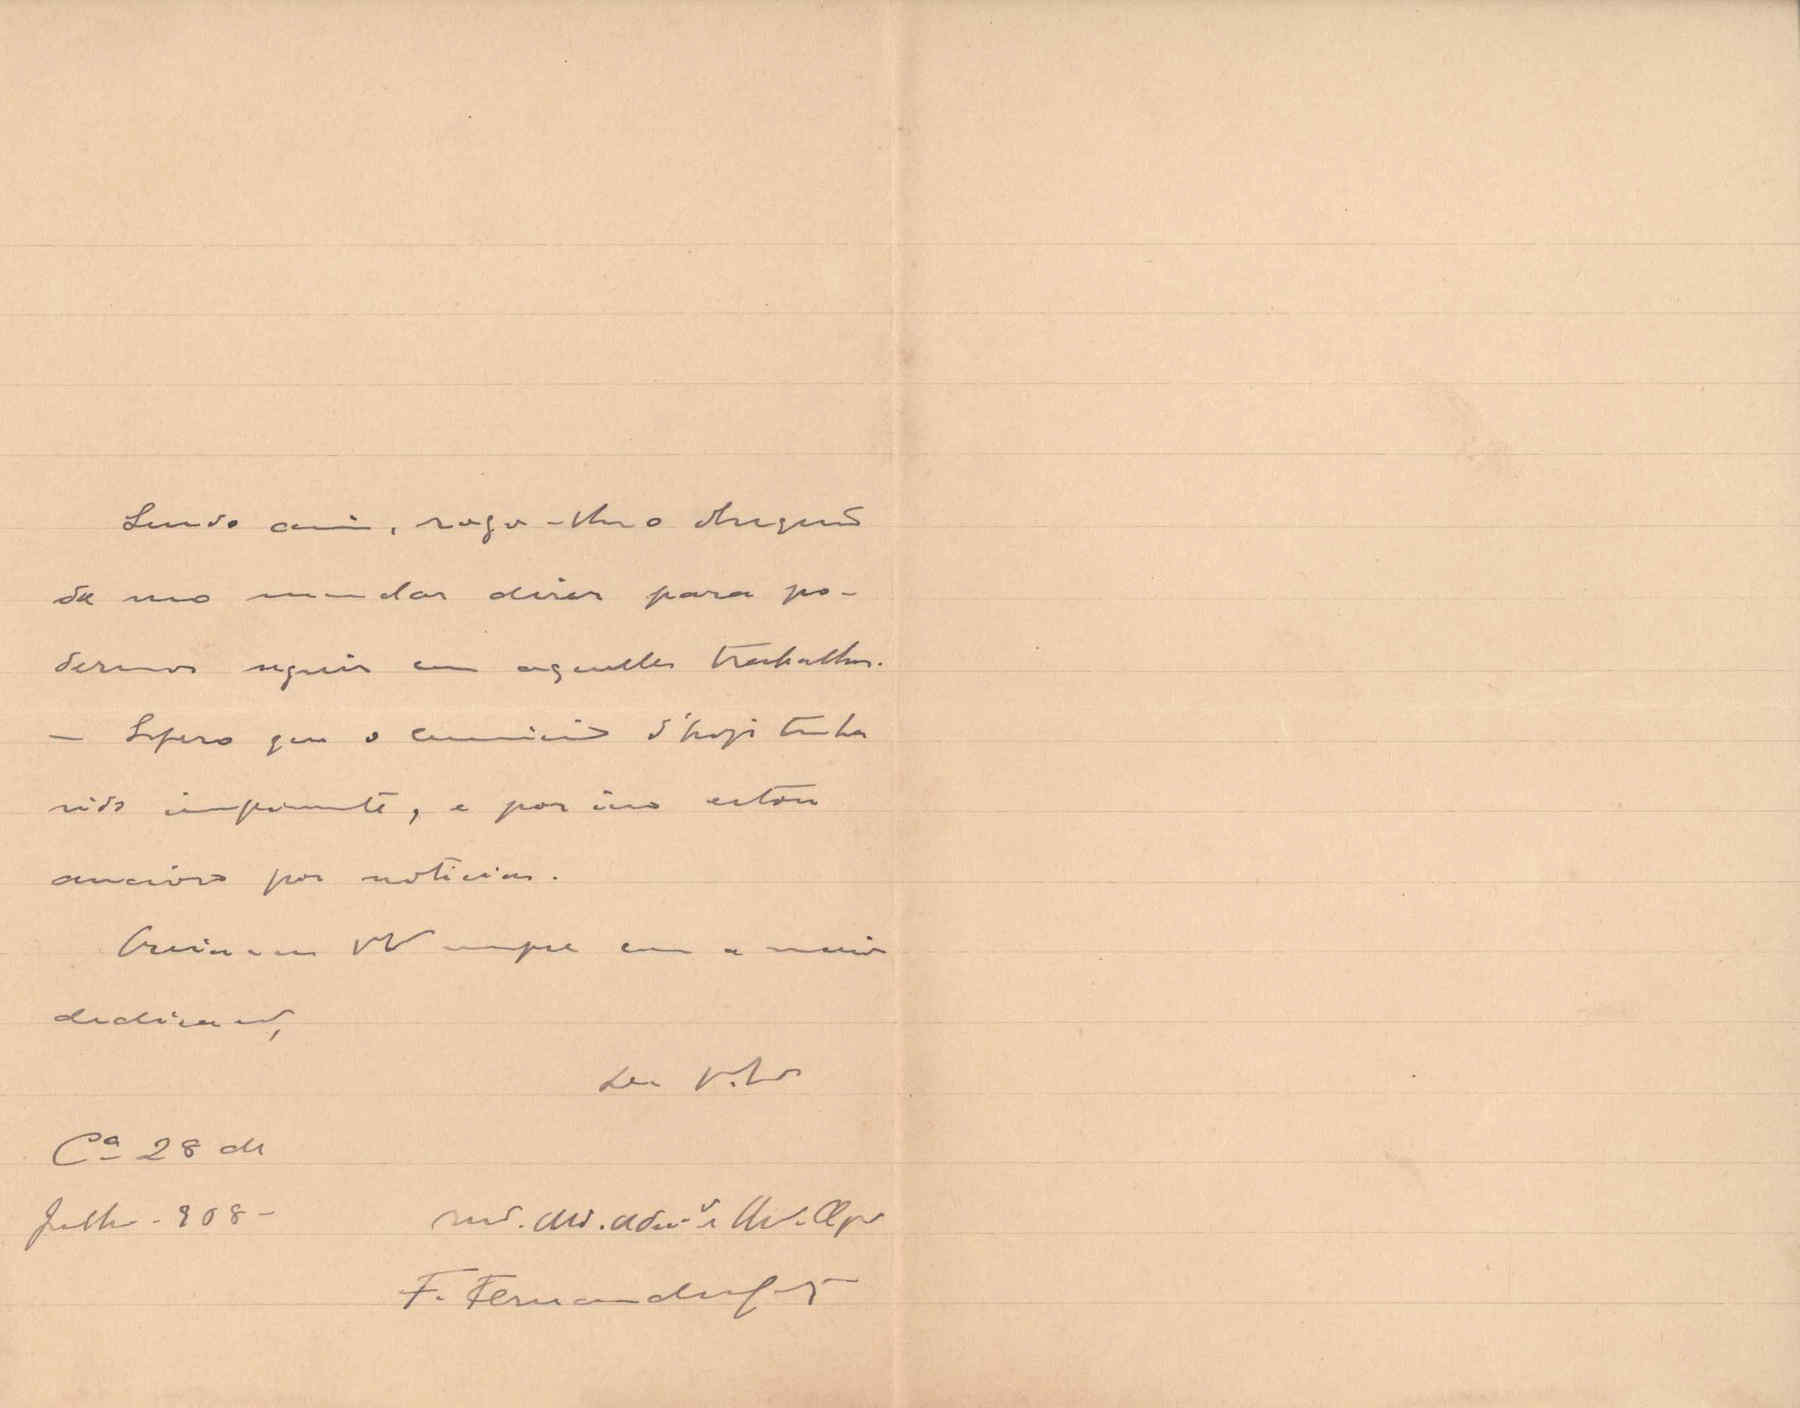 Sendo assim, rogo-lhe o obsequio
de nos mandar dizer para po-
dermos seguir com aquelles trabalhos.
— Espero que o comicio d'hoje tenha
sido imponente, e por isso estou
ancioso por noticias.
Creia-me sempre com a maior
dedicação,
De V.
Cª 28 de
Julho - 908 -
F. Fernandes